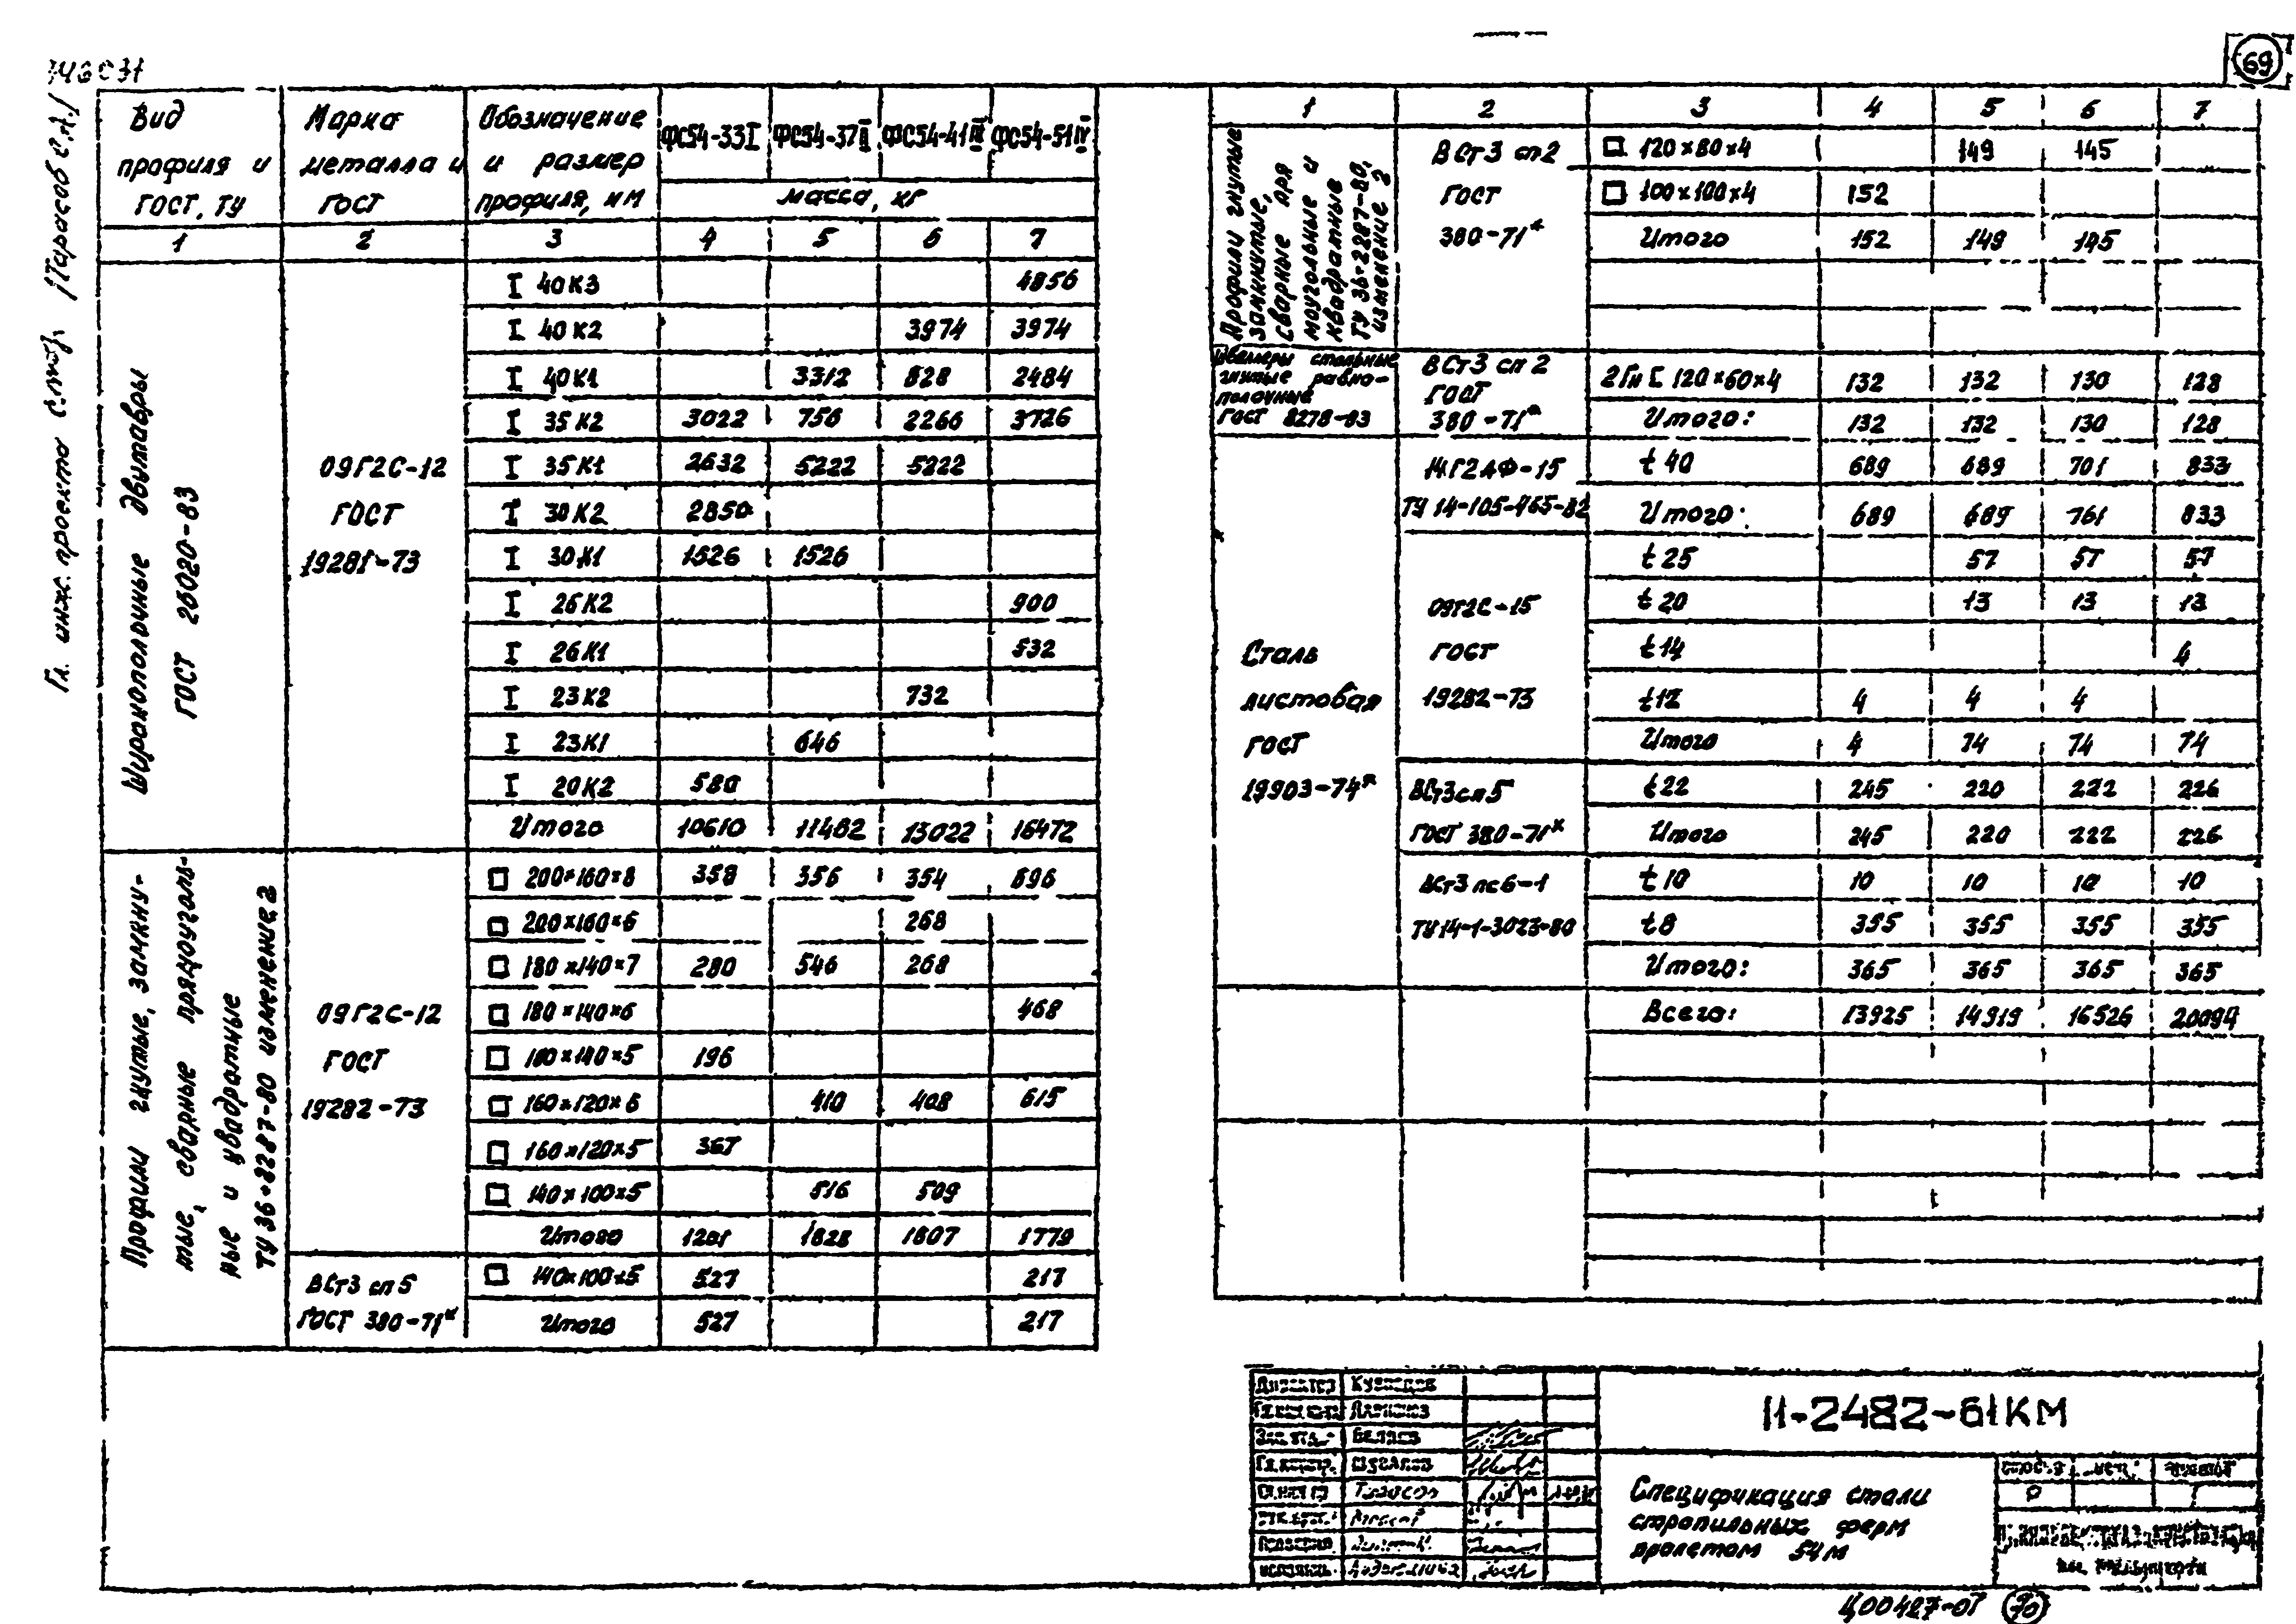 69
Гл. инж. проекта /Тарасов С.Л./
Вид профиля и ГОСТ, ТУ | Марка металла и ГОСТ | Обозначение и размер профиля, мм | ФС54-33I | ФС54-37II | ФС54-41III | ФС54-51IV
масса, кг
1 2 3 4 5 6 7
Широкополочные двутавры ГОСТ 26020-83
09Г2С-12 ГОСТ 19281-73
I 40К3 4856
I 40К2 3974 3974
I 40К1 3312 828 2484
I 35К2 3022 756 2266 3726
I 35К1 2632 5222 5222
I 30К2 2850
I 30К1 1526 1526
I 26К2 900
I 26К1 532
I 23К2 732
I 23К1 646
I 20К2 580
Итого 10610 11462 13022 16472
Профили гнутые, замкнутые, сварные прямоугольные и квадратные ТУ 36-2287-80 изменение 2
09Г2С-12 ГОСТ 19282-73
□ 200×160×8 358 356 354 696
□ 200×160×6 268
□ 180×140×7 280 546 268
□ 180×140×6 468
□ 180×140×5 196
□ 160×120×6 410 408 615
□ 160×120×5 367
□ 140×100×5 516 509
Итого 1201 1828 1807 1779
ВСт3 сп5 ГОСТ 380-71*
□ 140×100×5 527 217
Итого 527 217
1 2 3 4 5 6 7
Профили гнутые замкнутые, сварные прямоугольные и квадратные ТУ 36-2287-80, изменение 2
ВСт3 сп2 ГОСТ 380-71*
□ 120×80×4 149 145
□ 100×100×4 152
Итого 152 149 145
Швеллеры стальные гнутые равнополочные ГОСТ 8278-83
ВСт3 сп2 ГОСТ 380-71*
2Гн [ 120×60×4 132 132 130 128
Итого: 132 132 130 128
Сталь листовая ГОСТ 19903-74*
14Г2АФ-15 ТУ 14-105-465-82
t 40 689 689 701 833
Итого: 689 689 761 833
09Г2С-15 ГОСТ 19282-73
t 25 57 57 57
t 20 13 13 13
t 14 4
t 12 4 4 4
Итого 4 74 74 74
ВСт3сп5 ГОСТ 380-71*
t 22 245 220 222 226
Итого 245 220 222 226
ВСт3 пс6-1 ТУ14-1-3023-80
t 10 10 10 10 10
t 8 355 355 355 355
Итого: 365 365 365 365
Всего: 13925 14919 16526 20094
Директор Кузнецов
Беляев
Тарасов
11-2482-61КМ
Спецификация стали
стропильных ферм
пролетом 54м
Р
Ц00427-07 70